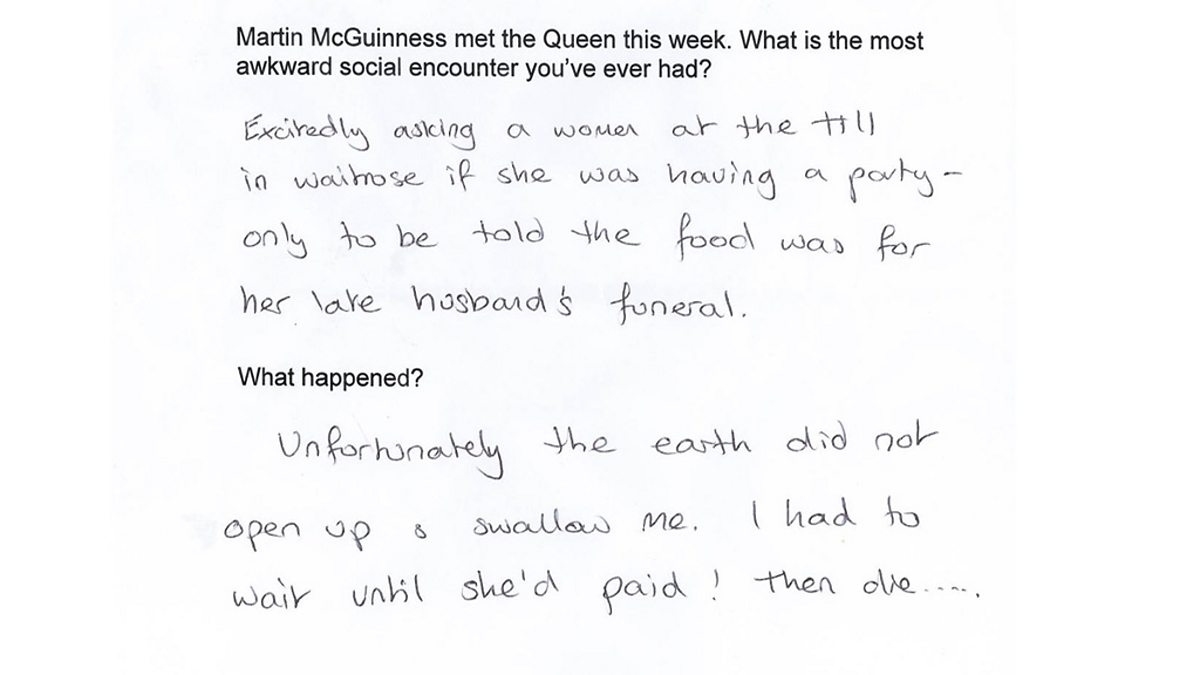 Martin McGuinness met the Queen this week. What is the most
awkward social encounter you've ever had?
Excitedly asking a women at the till
in waitrose if she was having a party -
only to be told the food was for
her late husband's funeral.
What happened?
Unfortunately the earth did not
open up & swallow me. I had to
wait until she'd paid! then die.....